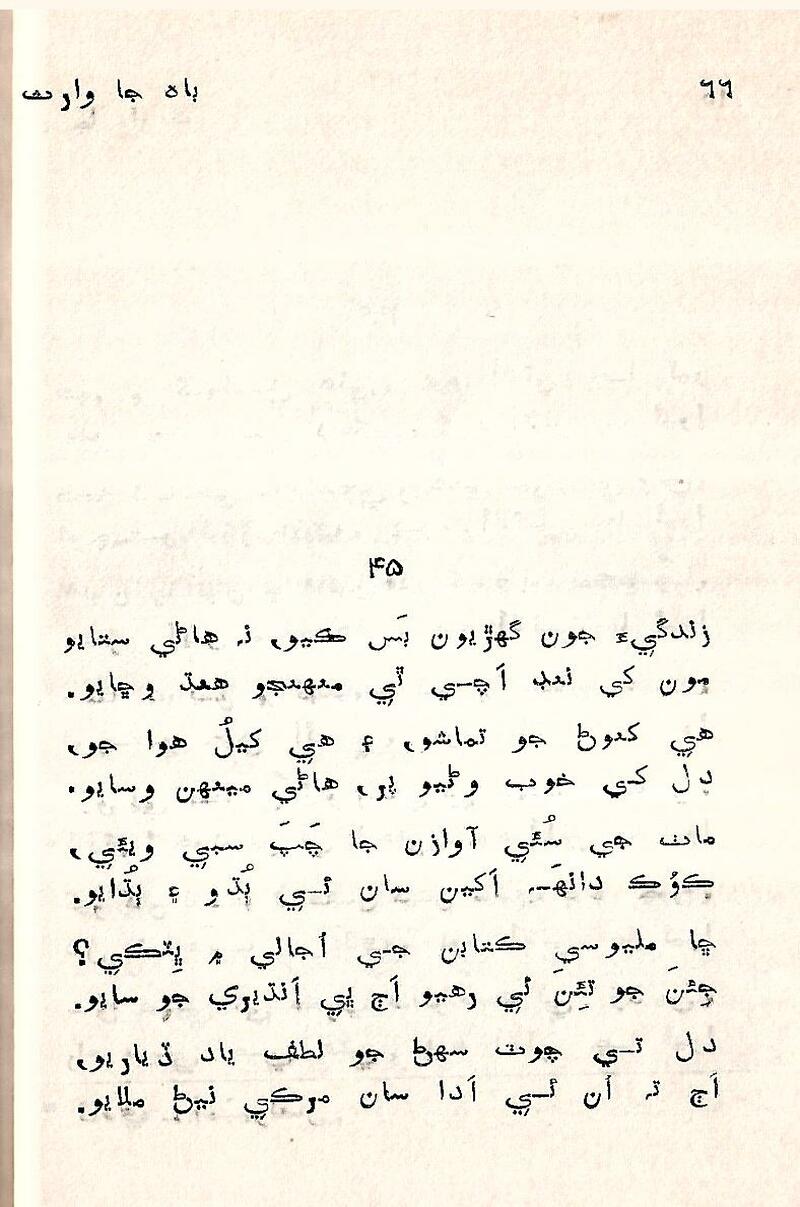 باھ جا وارث
٦٦
۴۵
زندگيءَ جون گهڙيون بَس ڪيو، نہ هاڻي ستايو
مون کي ننڊ اَچي ٿي منهنجو هنڌ وڇايو.
هي کنوڻ جو تماشو، ۽ هي کيلُ هوا جو،
دل کي خوب وڻيو پر، هاڻي مينهن وسايو.
مات جي سُئي آوازن جا چَپَ سبي ويئي،
ڪُوڪ دانهَہ اَکين سان ئي ٻُڌو ۽ ٻُڌايو.
ڇا مليو سي ڪتابن جي اُجالي ۾ ڀِٽڪي؟
جِئنَ جو تِئنَ ئي رهيو اَڄ ڀي اَنڌيري جو سايو.
دل تي چوٽ سهڻ جو لطف ياد ڏياريو،
اَڄ تہ اُن ئي اَدا سان مرڪي نيڻ ملايو.